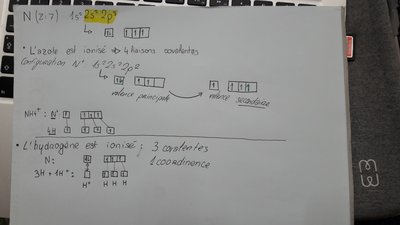 N (Z:7) 1s² 2s² 2p³
• L'azote est ionisé ⇒ 4 liaisons covalentes
Configuration N⁺ 1s² 2s² 2p²
valence principale
valence secondaire
NH4⁺: N⁺
4H
• L'hydrogène est ionisé; 3 covalentes
N: 1 coordinence
3H + 1H⁺:
H⁺ H H H